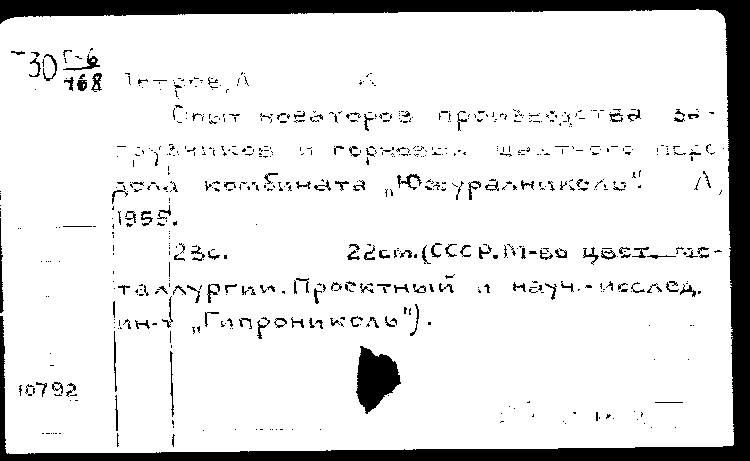 30 Г-6
768
Петров, А К
Опыт новаторов производства за-
грузчиков и горновых шахтного пере-
дела комбината „Южуралникель". Л,
1955.
23с. 22см. (СССР. М-во цвет. ме-
таллургии. Проектный и науч.-исслед.
ин-т „Гипроникель").
10792